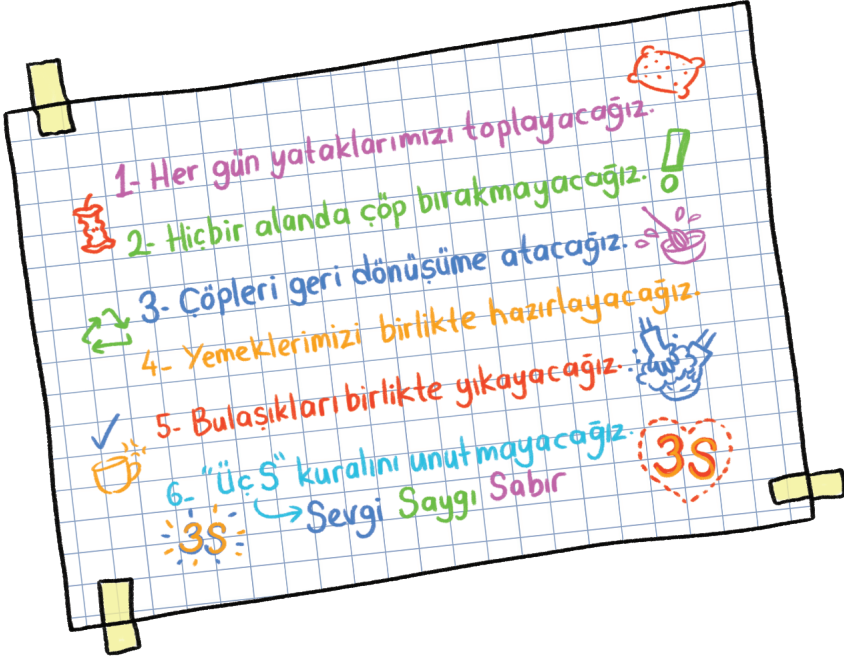 1- Her gün yataklarımızı toplayacağız.
2- Hiçbir alanda çöp bırakmayacağız.
3- Çöpleri geri dönüşüme atacağız.
4- Yemeklerimizi birlikte hazırlayacağız.
5- Bulaşıkları birlikte yıkayacağız.
6- "Üç S" kuralını unutmayacağız.
3S
Sevgi Saygı Sabır
3S